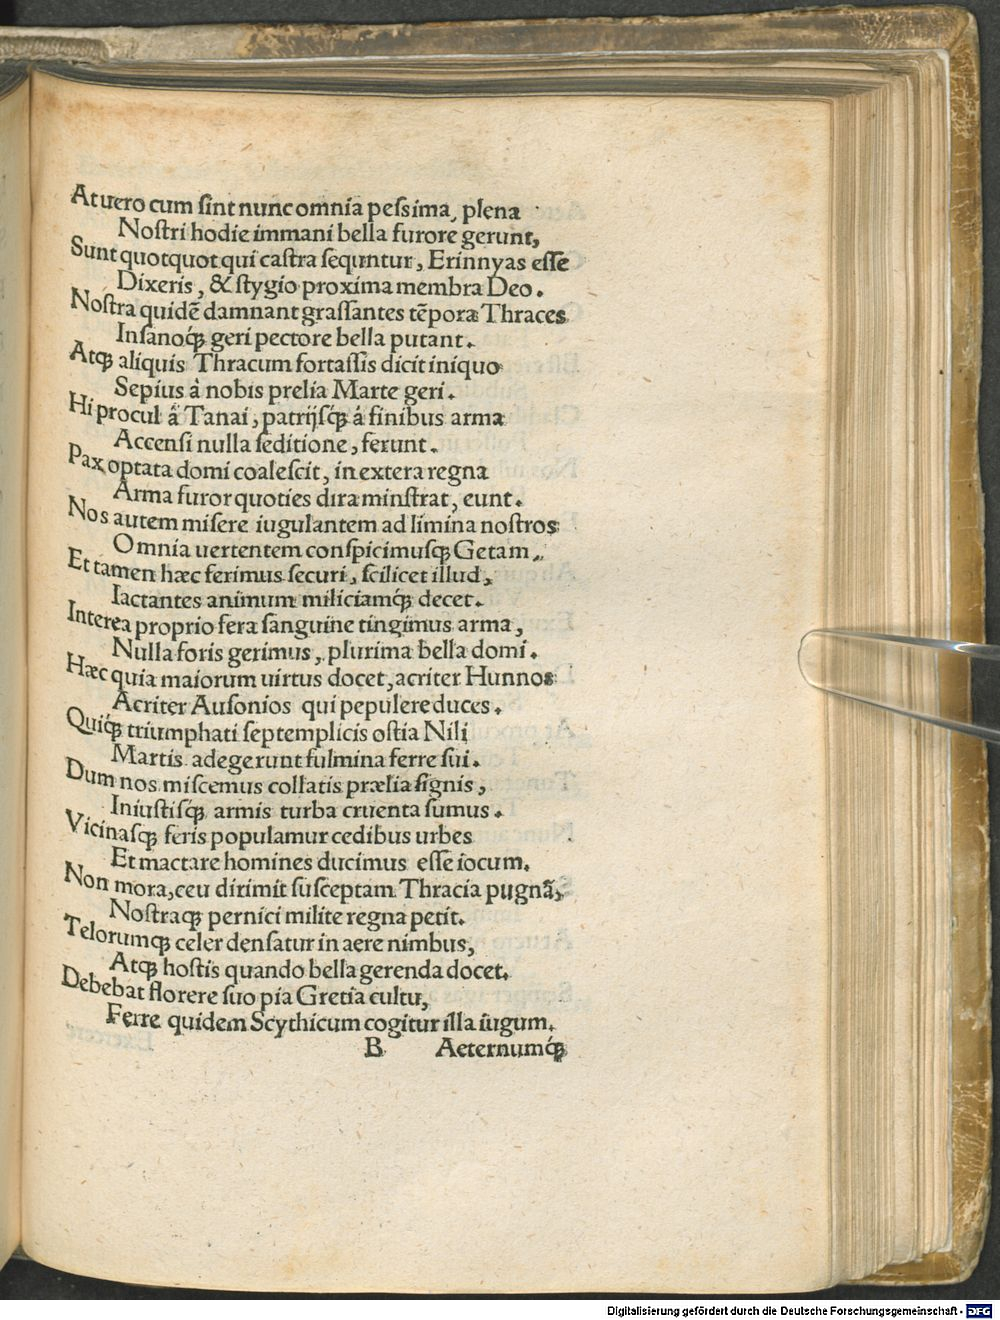 At uero cum ſint nunc omnia peſsima, plena
Noſtri hodie immani bella furore gerunt,
Sunt quotquot qui caſtra ſequntur, Erinnyas eſſe
Dixeris, & ſtygio proxima membra Deo.
Noſtra quidẽ damnant graſſantes tẽpora Thraces
Inſanoq́ꝫ geri pectore bella putant.
Atqꝫ aliquis Thracum fortaſſis dicit iniquo
Sepius à nobis prelia Marte geri.
Hi procul à Tanai, patrijſq́ꝫ á finibus arma
Accenſi nulla ſeditione, ferunt.
Pax optata domi coaleſcit, in extera regna
Arma furor quoties dira minſtrat, eunt.
Nos autem miſere iugulantem ad limina noſtros
Omnia uertentem conſpicimuſqꝫ Getam,
Et tamen hæc ferimus ſecuri, ſcilicet illud,
Iactantes animum miliciamq́ꝫ decet.
Interea proprio fera ſanguine tingimus arma,
Nulla foris gerimus, plurima bella domi.
Hæc quia maiorum uirtus docet, acriter Hunnos
Acriter Auſonios qui pepulere duces.
Quiq́ꝫ triumphati ſeptemplicis oſtia Nili
Martis adegerunt fulmina ferre ſui.
Dum nos miſcemus collatis prælia ſignis,
Iniuſtiſq́ꝫ armis turba cruenta ſumus.
Vicinaſqꝫ feris populamur cedibus urbes
Et mactare homines ducimus eſſe iocum.
Non mora, ceu dirimit ſuſceptam Thracia pugnã,
Noſtraqꝫ pernici milite regna petit.
Telorumqꝫ celer denſatur in aere nimbus,
Atqꝫ hoſtis quando bella gerenda docet.
Debebat florere ſuo pia Gretia cultu,
Ferre quidem Scythicum cogitur illa iugum.
B Aeternumq́ꝫ
Digitalisierung gefördert durch die Deutsche Forschungsgemeinschaft - DFG